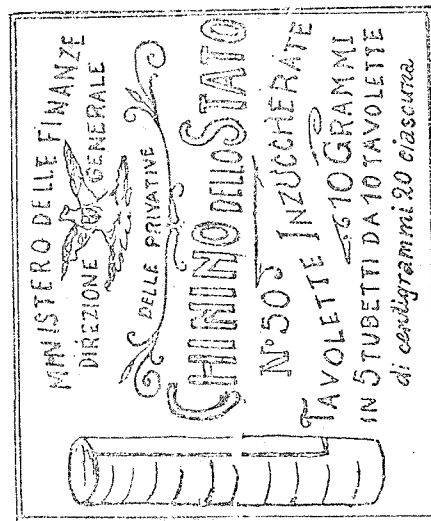 MINISTERO DELLE FINANZE
DIREZIONE GENERALE
DELLE PRIVATIVE
CHININO DELLO STATO
N° 50 INZUCCHERATE
TAVOLETTE 10 GRAMMI
IN 5 TUBETTI DA 10 TAVOLETTE
di centigrammi 20 ciascuna